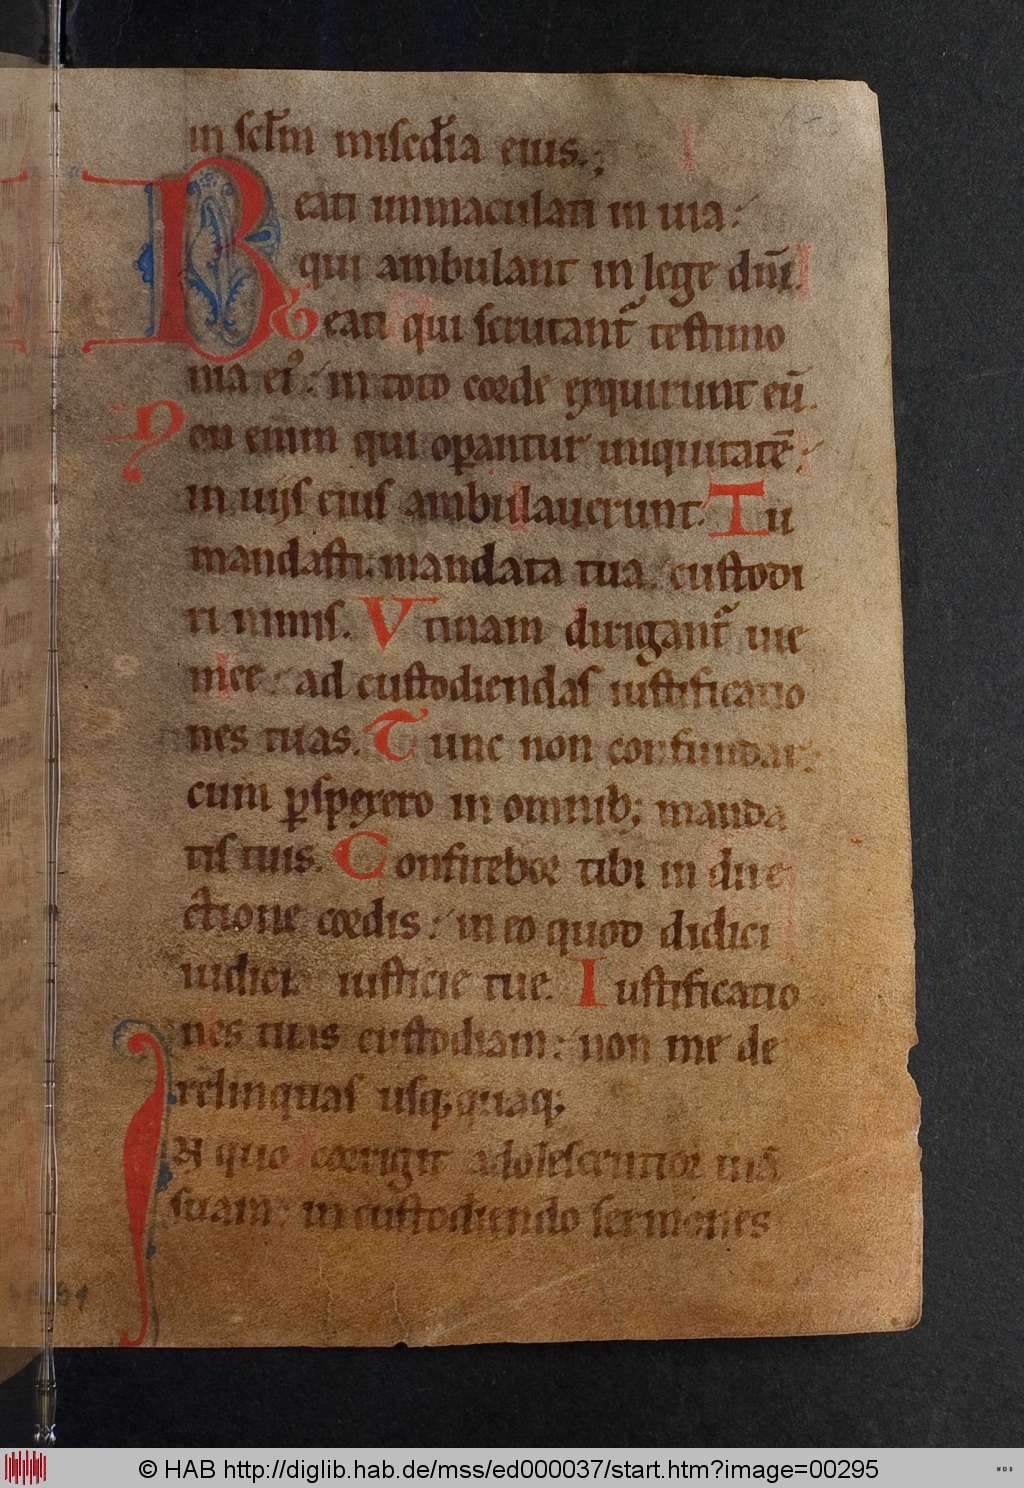 in sclm misedia eius.;
Beati immaculati in uia:
qui ambulant in lege dni.
Beati qui scrutant testimo
nia ei: in toto corde exquirunt eu.
Non enim qui opantur iniquitate:
in uijs eius ambulauerunt. Tu
mandasti: mandata tua custodi
ri nimis. Vtinam dirigant uie
mee: ad custodiendas iustificatio
nes tuas. Tunc non confundar:
cum pspexero in omnib; manda
tis tuis. Confitebor tibi in dire
ctione cordis: in eo quod didici
iudici iusticie tue. Iustificatio
nes tuas custodiam: non me de
relinquas usq; quaq;
In quo corrigit adolescentior uia
suam: in custodiendo sermones
© HAB http://diglib.hab.de/mss/ed000037/start.htm?image=00295